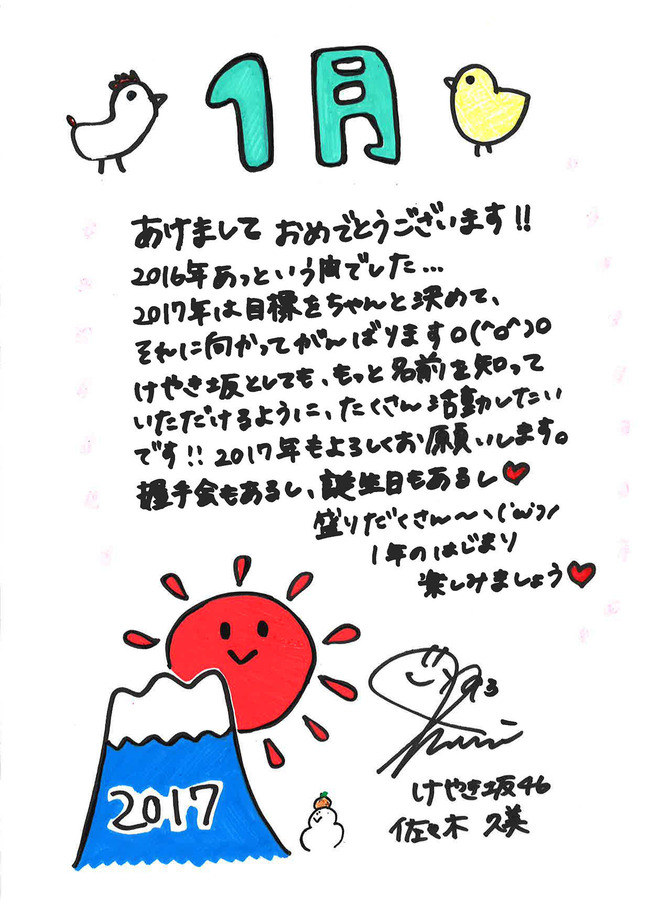 1月
あけまして おめでとうございます!!
2016年あっという間でした...
2017年は目標をちゃんと決めて、
それに向かってがんばります o(^o^)o
けやき坂としても、もっと名前を知って
いただけるように、たくさん活動したい
です!! 2017年もよろしくお願いします。
握手会もあるし、誕生日もあるし♥
盛りだくさん〜ヽ(´ω`)ノ
1年のはじまり
楽しみましょう♥
2017
けやき坂46
佐々木 久美